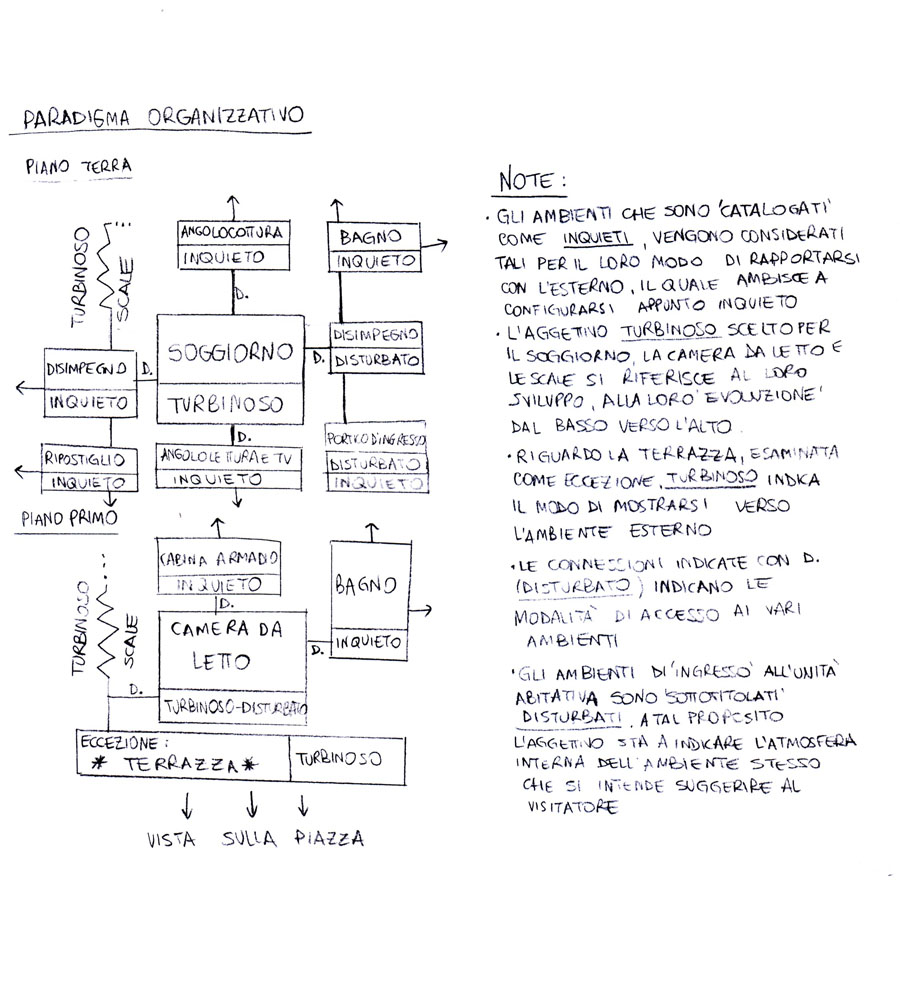 PARADIGMA ORGANIZZATIVO
PIANO TERRA
TURBINOSO
SCALE
ANGOLO COTTURA
INQUIETO
BAGNO
INQUIETO
D.
SOGGIORNO
TURBINOSO
D.
DISIMPEGNO
DISTURBATO
DISIMPEGNO
INQUIETO
D.
D.
RIPOSTIGLIO
INQUIETO
ANGOLO LETTURA E TV
INQUIETO
PORTICO D'INGRESSO
DISTURBATO
INQUIETO
PIANO PRIMO
TURBINOSO
SCALE
CABINA ARMADIO
INQUIETO
D.
BAGNO
INQUIETO
CAMERA DA
LETTO
TURBINOSO-DISTURBATO
D.
D.
ECCEZIONE:
* TERRAZZA *
TURBINOSO
VISTA SULLA PIAZZA
NOTE:
• GLI AMBIENTI CHE SONO 'CATALOGATI'
COME INQUIETI, VENGONO CONSIDERATI
TALI PER IL LORO MODO DI RAPPORTARSI
CON L'ESTERNO, IL QUALE AMBISCE A
CONFIGURARSI APPUNTO INQUIETO
• L'AGGETTIVO TURBINOSO SCELTO PER
IL SOGGIORNO, LA CAMERA DA LETTO E
LE SCALE SI RIFERISCE AL LORO
SVILUPPO, ALLA LORO 'EVOLUZIONE'
DAL BASSO VERSO L'ALTO.
• RIGUARDO LA TERRAZZA, ESAMINATA
COME ECCEZIONE, TURBINOSO INDICA
IL MODO DI MOSTRARSI VERSO
L'AMBIENTE ESTERNO
• LE CONNESSIONI INDICATE CON D.
(DISTURBATO) INDICANO LE
MODALITÀ DI ACCESSO AI VARI
AMBIENTI
• GLI AMBIENTI DI 'INGRESSO' ALL'UNITÀ
ABITATIVA SONO 'SOTTOTITOLATI'
DISTURBATI. A TAL PROPOSITO
L'AGGETTIVO STA A INDICARE L'ATMOSFERA
INTERNA DELL'AMBIENTE STESSO
CHE SI INTENDE SUGGERIRE AL
VISITATORE